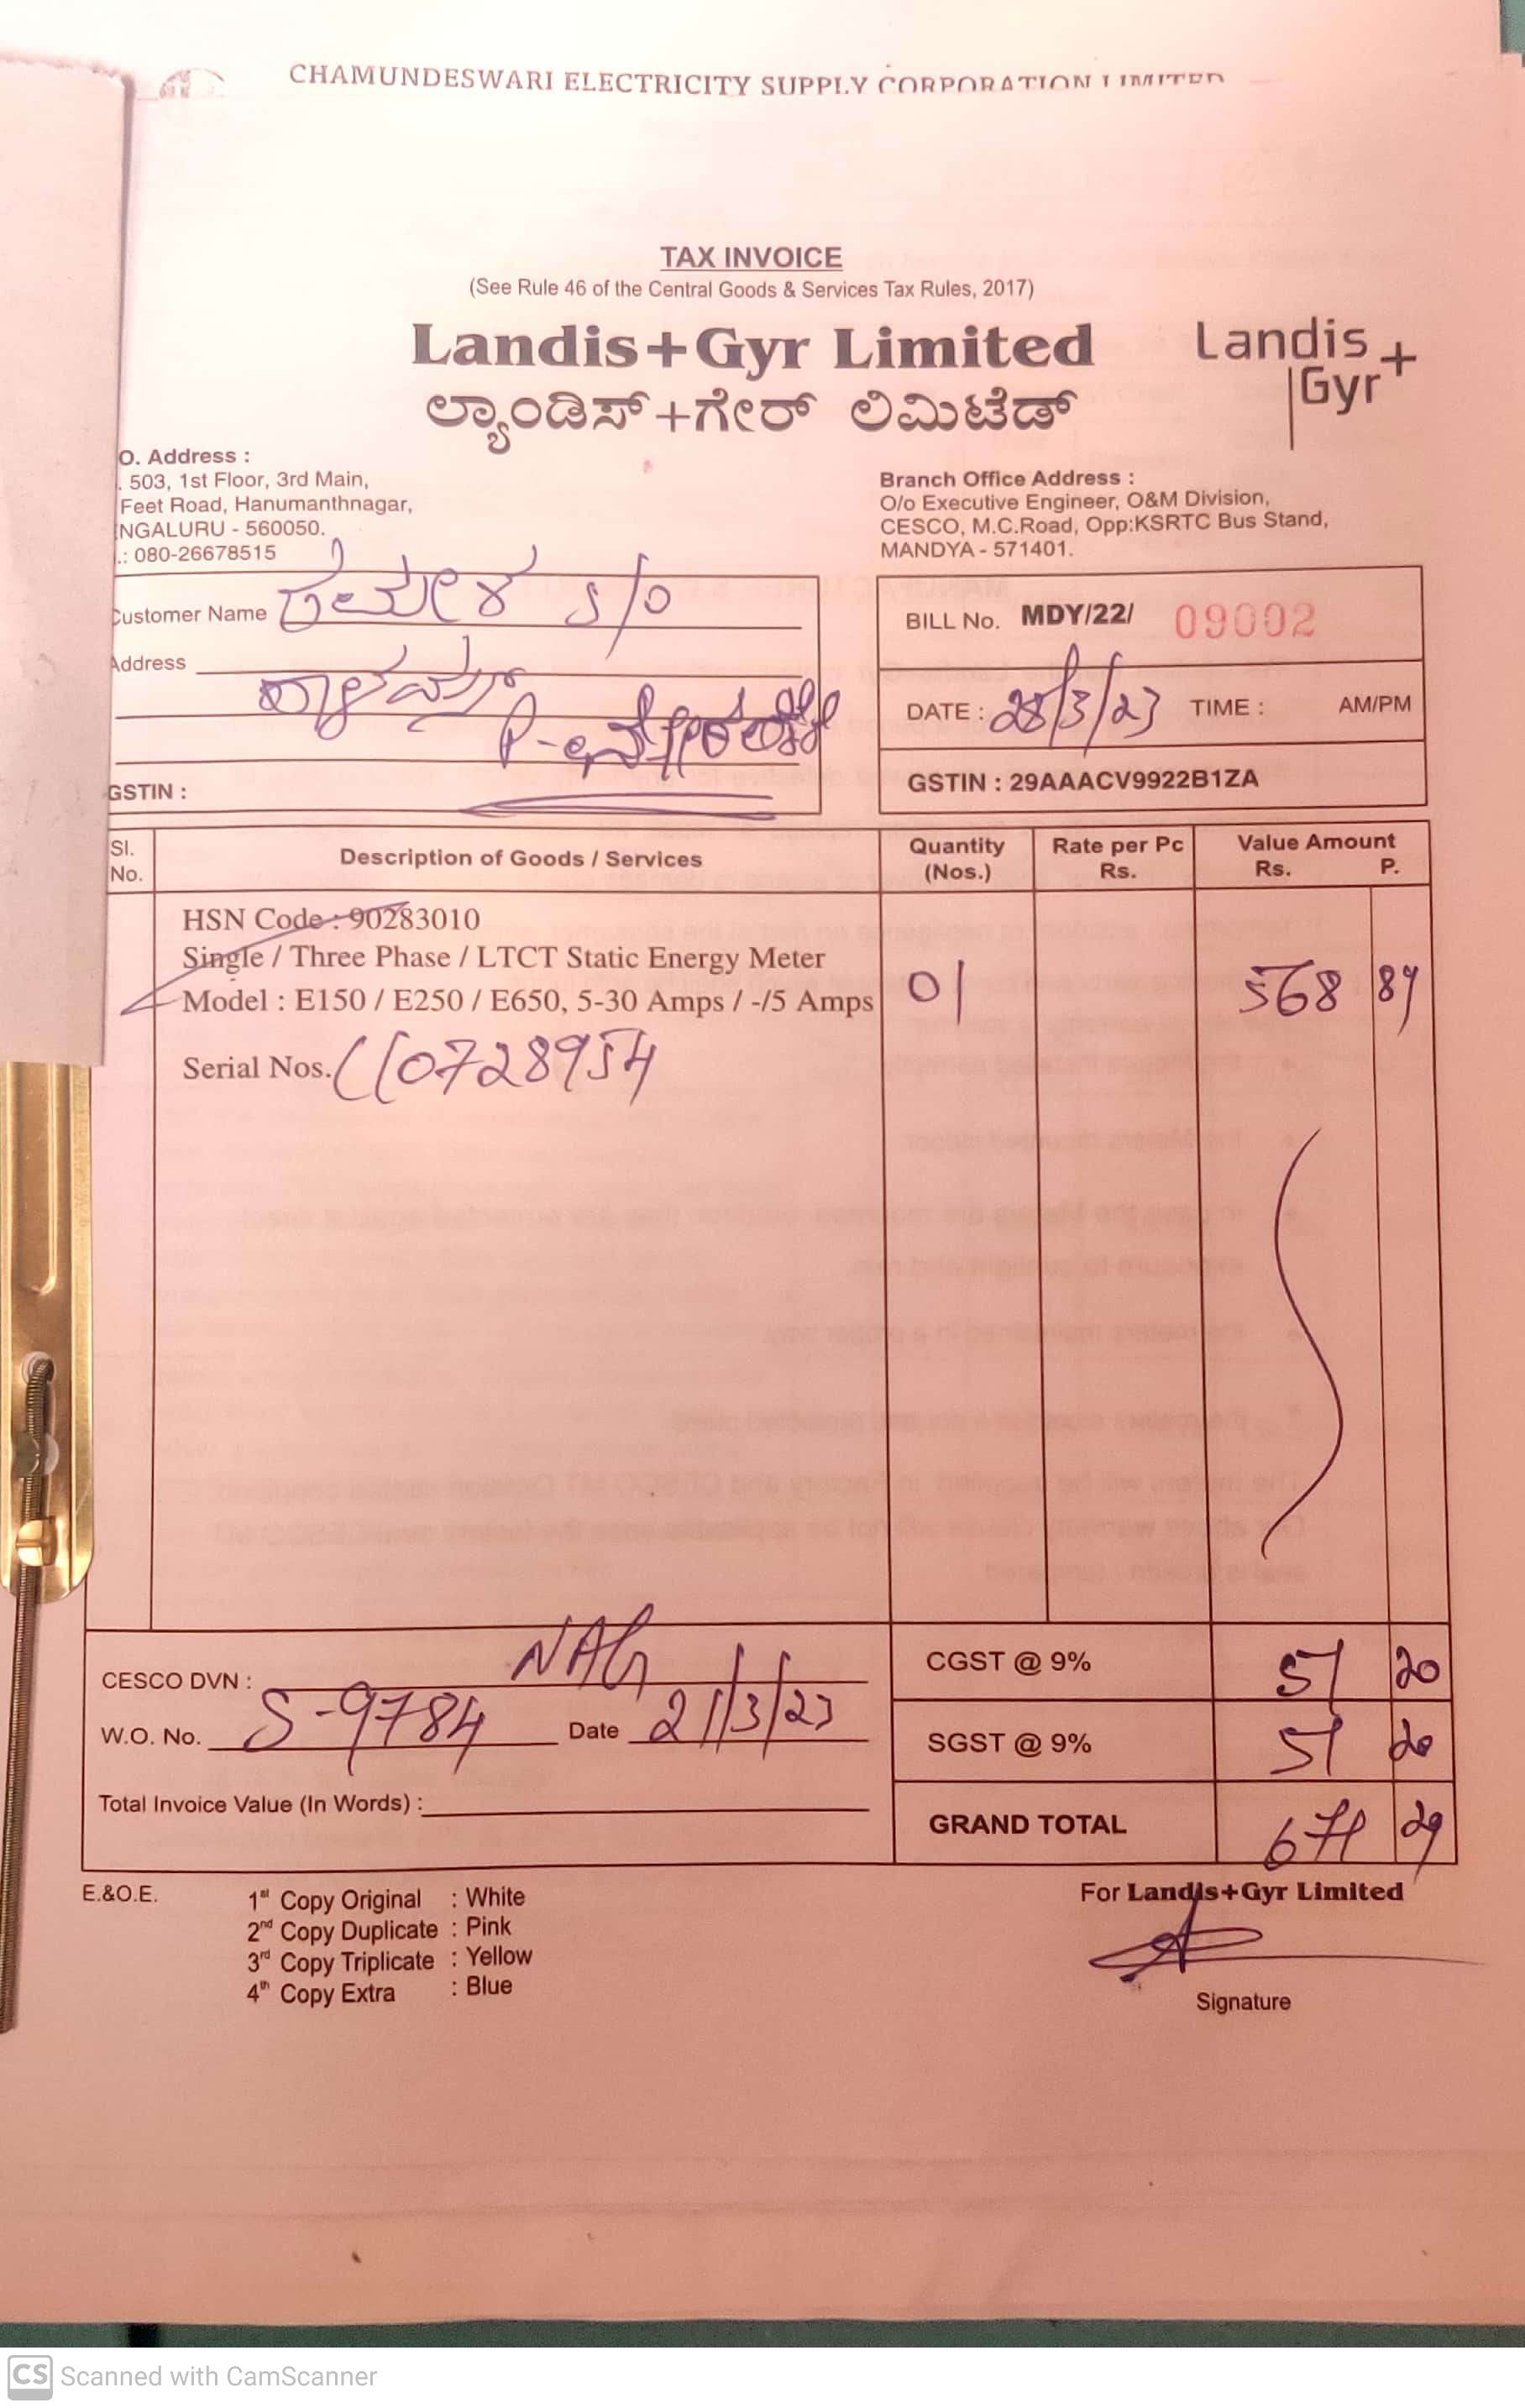 CHAMUNDESWARI ELECTRICITY SUPPLY CORPORATION LIMITED
TAX INVOICE
(See Rule 46 of the Central Goods & Services Tax Rules, 2017)
Landis+Gyr Limited
Landis+
Gyr
ಲ್ಯಾಂಡಿಸ್+ಗೇರ್ ಲಿಮಿಟೆಡ್
O. Address :
503, 1st Floor, 3rd Main,
Feet Road, Hanumanthnagar,
NGALURU - 560050.
.: 080-26678515
Branch Office Address :
O/o Executive Engineer, O&M Division,
CESCO, M.C.Road, Opp:KSRTC Bus Stand,
MANDYA - 571401.
Customer Name ರಮೇಶ S/O
Address
GSTIN :
BILL No. MDY/22/ 09002
DATE : 28/3/23 TIME : AM/PM
GSTIN : 29AAACV9922B1ZA
Sl. No. Description of Goods / Services Quantity (Nos.) Rate per Pc Rs. Value Amount Rs. P.
HSN Code : 90283010
Single / Three Phase / LTCT Static Energy Meter
Model : E150 / E250 / E650, 5-30 Amps / -/5 Amps 01 568 89
Serial Nos. 110728954
CESCO DVN : NAG
W.O. No. S-9784 Date 21/3/23
Total Invoice Value (In Words) :
CGST @ 9% 51 20
SGST @ 9% 51 20
GRAND TOTAL 671 29
E.&O.E.
1st Copy Original : White
2nd Copy Duplicate : Pink
3rd Copy Triplicate : Yellow
4th Copy Extra : Blue
For Landis+Gyr Limited
Signature
CS Scanned with CamScanner